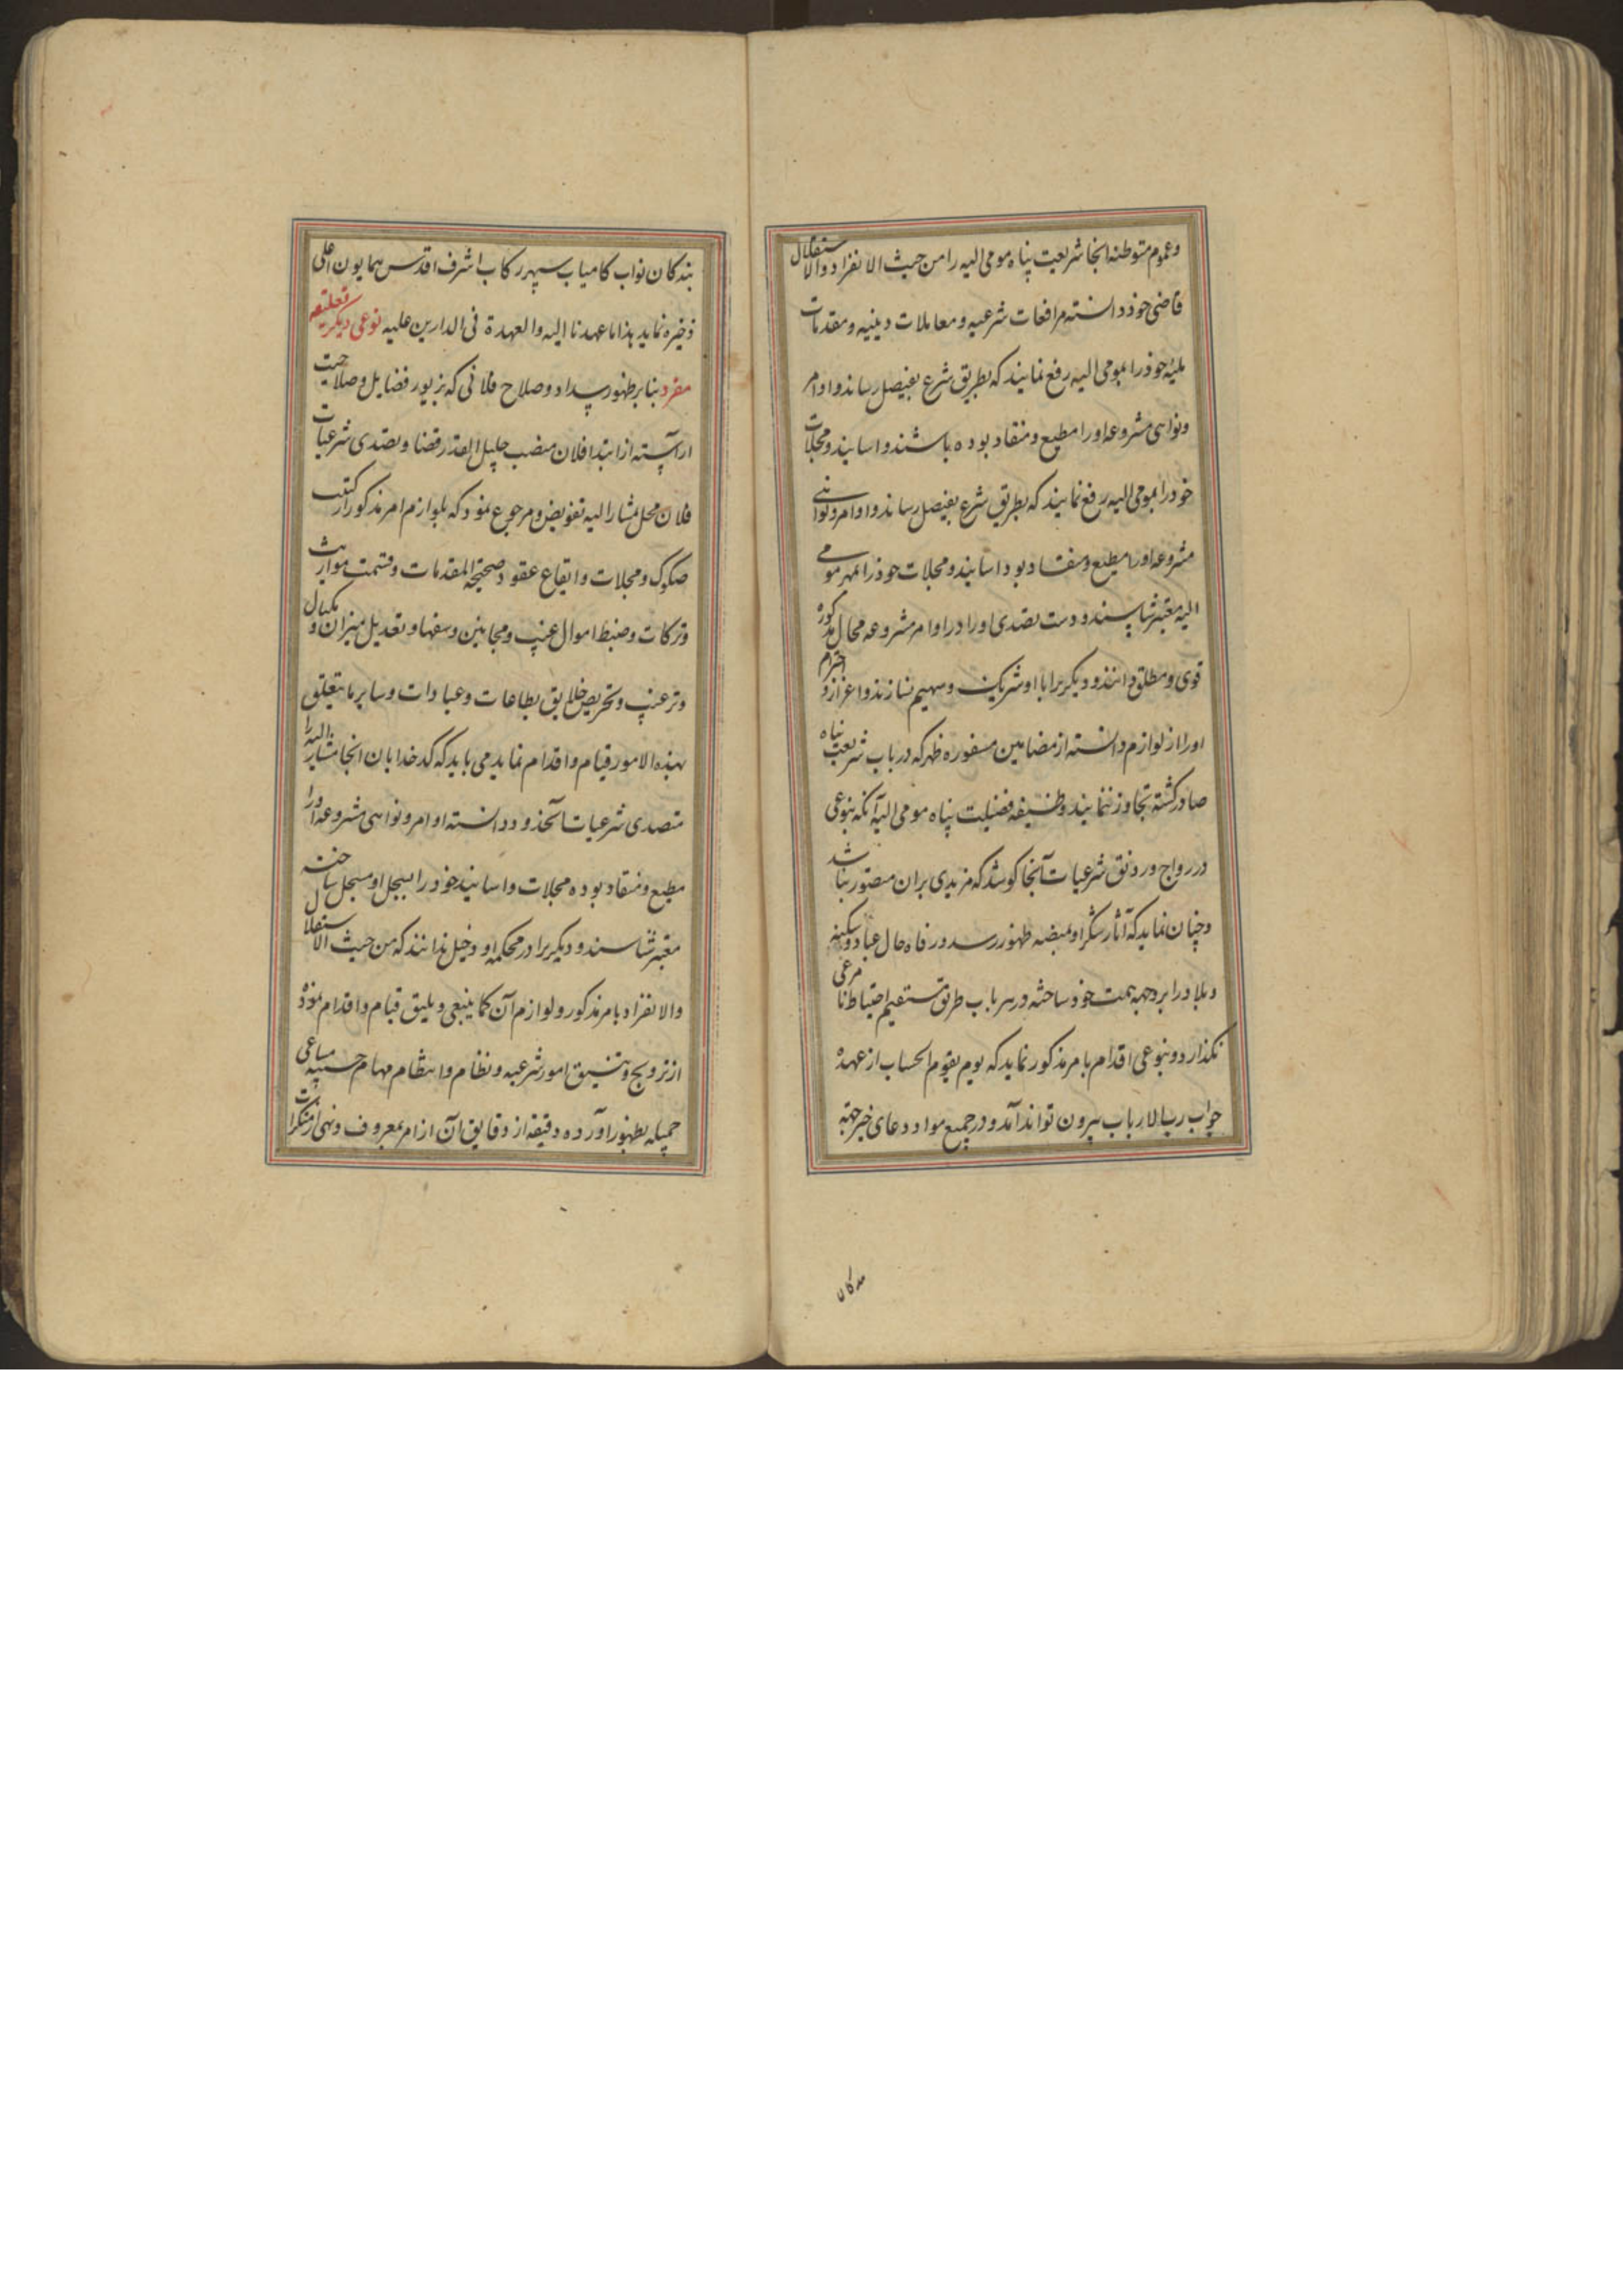 وعموم متوطنه انجا شریعت پناه مومی الیه را من حیث الانفراد والاستقلال
قاضی خود دانسته مرافعات شرعیه و معاملات دینیه و مقدمات
ملیه خود را بمومی الیه رفع نمایند که بطریق شرع بفیصل رساند و اوامر
و نواهی مشروعه او را مطیع و منقاد بوده باشند و اسانید و سجلات
خود را بمومی الیه رفع نمایند که بطریق شرع بفیصل رساند و اوامر و نواهی
مشروعه او را مطیع و منقاد بود اسانید و سجلات خود را بمهر مومی
الیه معتبر شناسند و دست تصدی او را در اوامر مشروعه محال مذکوره
قوی و مطلق دانند و دیگریرا با او شریک و سهیم نسازند و اعزاز و احترام
او را از لوازم دانسته از مضامین مسفوره ظهر که در باب شریعت پناه
صادر گشته تجاوز ننمایند وظیفه فضیلت پناه مومی الیه آنکه بنوعی
در رواج و رونق شرعیات آنجا کوشد که مزیدی بران متصور نباشد
و چنان نماید که آثار شکر او بمنصه ظهور رسد و رفاه حال عباد و سکینه
و بلاد را بر وجهه همت خود ساخته در هر باب طریق مستقیم احتیاط نامرعی
نگذارد و بنوعی اقدام بامر مذکور نماید که یوم یقوم الحساب از عهده
جواب رب الارباب بیرون تواند آمد و در جمیع مواد دعای خیر جهة
بندگان
بندگان نواب کامیاب سپهر رکاب اشرف اقدس همایون اعلی
ذخیره نماید هذا ما عهدنا الیه والعهدة فی الدارین علیه نوعی دیگر تعلیقه
مفرد بنابر ظهور سداد و صلاح فلانی که بزیور فضایل و صلاحیت
اراسته از ابتدا فلان منصب جلیل القدر قضا و تصدی شرعیات
فلان محل بمشار الیه تفویض و مرجوع نمود که بلوازم امر مذکور از کتب
صکوک و سجلات و ایقاع عقود صحیحة المقدمات و قسمت مواریث
و ترکات و ضبط اموال غیب و مجانین و سفها و تعدیل میزان و مکیال
و ترغیب و تحریص خلایق بطاعات و عبادات و سایر ما یتعلق
بهذه الامور قیام و اقدام نماید می باید که کدخدایان انجا مشار الیه را
متصدی شرعیات آنحدود دانسته اوامر و نواهی مشروعه او را
مطیع و منقاد بوده سجلات و اسانید خود را بسجل او مسجل ساخته
معتبر شناسند و دیگریرا در محکمه او دخیل ندانند که من حیث الاستقلال
والانفراد بامر مذکور و لوازم آن کما ینبغی و یلیق قیام و اقدام نموده
از ترویج و تنسیق امور شرعیه و نظام و انتظام مهام حسبیه مساعی
جمیله بظهور آورده دقیقه از دقایق آن از امر بمعروف و نهی از منکرات